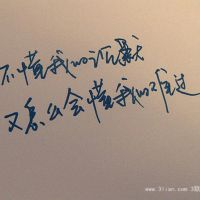 不懂我的沉默
又怎么会懂我的难过
www.3lian.com